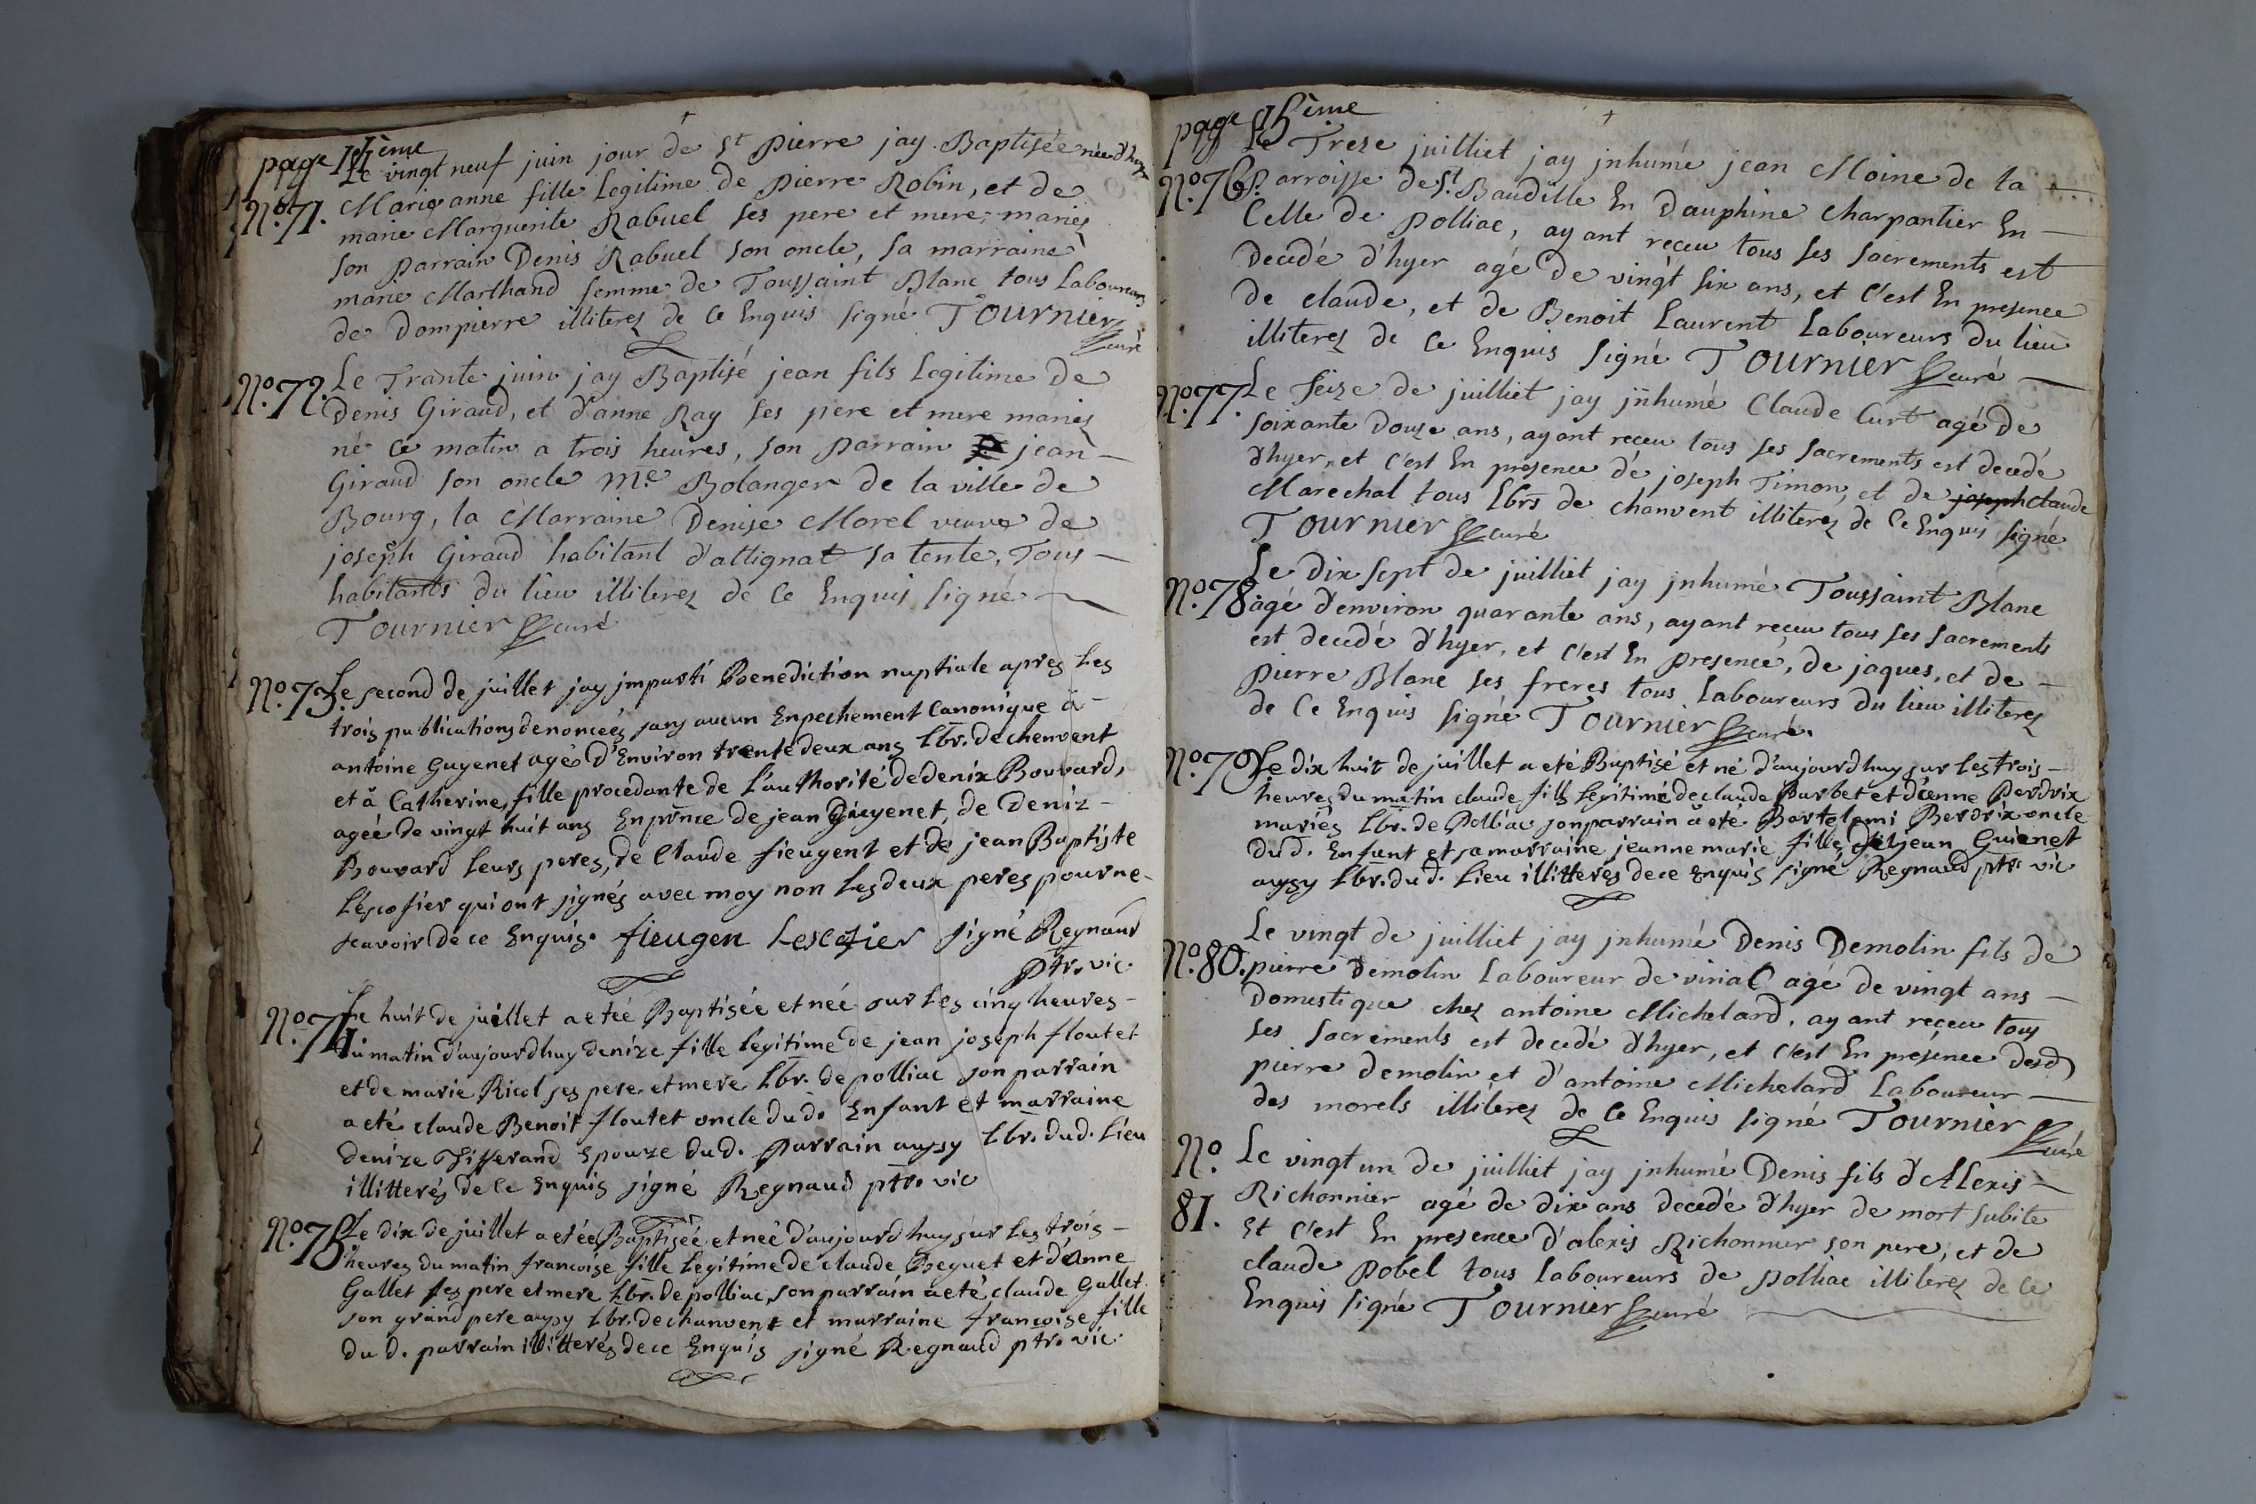 page 14ème
Le vingt neuf juin jour de St pierre jay Baptisée née d'hyer
No.71. Marie anne fille Legitime de pierre Robin, et de
marie Marguerite Rabuel ses pere et mere mariés
son parrain Denis Rabuel son oncle, sa marraine
marie Marthand femme de Toussaint Blanc tous Laboureurs
de Dompierre illiterez de ce Enquis signé Tournier
curé
No.72. Le Trante juin jay Baptisé jean fils Legitime de
Denis Giraud, et d'anne Ray ses pere et mere mariez
né ce matin a trois heures, son parrain jean
Giraud son oncle Me Bolanger de la ville de
Bourg, la Marraine Denise Morel veuve de
joseph Giraud habitant d'attignat sa tente, Tous
habitants du lieu illiterez de ce Enquis signé
Tournier curé
No.73. Le second de juillet jay jmparti Benediction nuptiale apres les
trois publications denonceés sans aucun Enpechement Canonique à
antoine Guyenet agé d'Environ trente deux ans Lbr. de chenvent
et à Catherine, fille procedante de L'authorité de denix Bouvard,
ageé de vingt huit ans Enprnce de jean Guyenet, de Deniz
Bouvard leurs peres, de Claude fieugent et de jean Baptiste
Léscofier qui ont signés avec moy non les deux peres pour ne
scavoir de ce Enquis. fieugen Lescofier signé Regnaud
ptr. vic.
No.74. Le huit de juillet a eteé Baptisée et neé sur les cinq heures
du matin d'aujourdhuy denize fille legitime de jean joseph floutet
et de marie Ricol ses pere et mere Lbr. de polliac son parrain
a eté claude Benoit floutet oncle dud. Enfant et marraine
denize Tisserand Epouze dud. parrain aussy Lbr. dud. Lieu
illitterés de ce Enquis signé Regnaud ptr. vic
No.75. Le dix de juillet a eteé Baptisée et neé d'aujourdhuy sur les trois
heures du matin francoise fille legitime de claude Beguet et d'Anne
Gallet ses pere et mere Lbr. de polliac, son parrain a eté claude Gallet
son grand pere aussy Lbr. de chanvent et marraine francoise fille
dud. parrain illitterés de ce Enquis signé Regnaud ptr. vic.
page 15ème
Le Treze juilliet jay jnhumé jean Moine de la
No.76. parroisse de St. Baudille En Dauphine charpantier En
Celle de polliac, ayant reçeu tous ses sacrements est
Decedé d'hyer agé de vingt six ans, et c'est En presence
de claude, et de Benoit Laurent Laboureurs du lieu
illiterez de ce Enquis signé Tournier curé
No.77. Le seize de juilliet jay jnhumé Claude Curt agé de
soixante douze ans, ayant reçeu tous ses sacrements est decedé
d'hyer, et c'est En presence de joseph Timon, et de joseph claude
Marechal tous Lbrs de chanvent illiterez de ce Enquis signé
Tournier curé
Le dix sept de juilliet jay jnhumé Toussaint Blanc
No.78. agé d'environ quarante ans, ayant reçeu tous ses sacrements
est decedé d'hyer, et c'est En presence, de jaques, et de
pierre Blanc ses freres tous Laboureurs du lieu illiterez
de ce Enquis signé Tournier curé.
No.79. Le dix huit de juillet a eté Baptisé et né d'aujourdhuy sur les trois
heures du matin claude fils legitime de claude Barbet et d'enne Perdrix
mariés Lbr. de Polliac son parrain a eté Bartelemi Perdrix oncle
dud. Enfant et sa marraine jeanne marie fille de jean Guienet
aussy Lbr. dud. Lieu illitterés de ce Enquis signé Regnaud ptr. vic
Le vingt de juilliet jay jnhumé Denis Demolin fils de
No.80. pierre Demolin Laboureur de viriat agé de vingt ans
Domestique chez antoine Michelard, ayant reçeu tous
ses sacrements est decedé d'hyer, et c'est En présence desd
pierre Demolin et d'antoine Michelard Laboureur
des morels illiterez de ce Enquis signé Tournier
curé
No. Le vingt un de juilliet jay jnhumé Denis fils d'Alexis
81. Richonnier agé de dix ans decedé d'hyer de mort subite
Et c'est En presence d'alexis Richonnier son pere, et de
claude pobel tous laboureurs de polliac illiterez de ce
Enquis signé Tournier curé